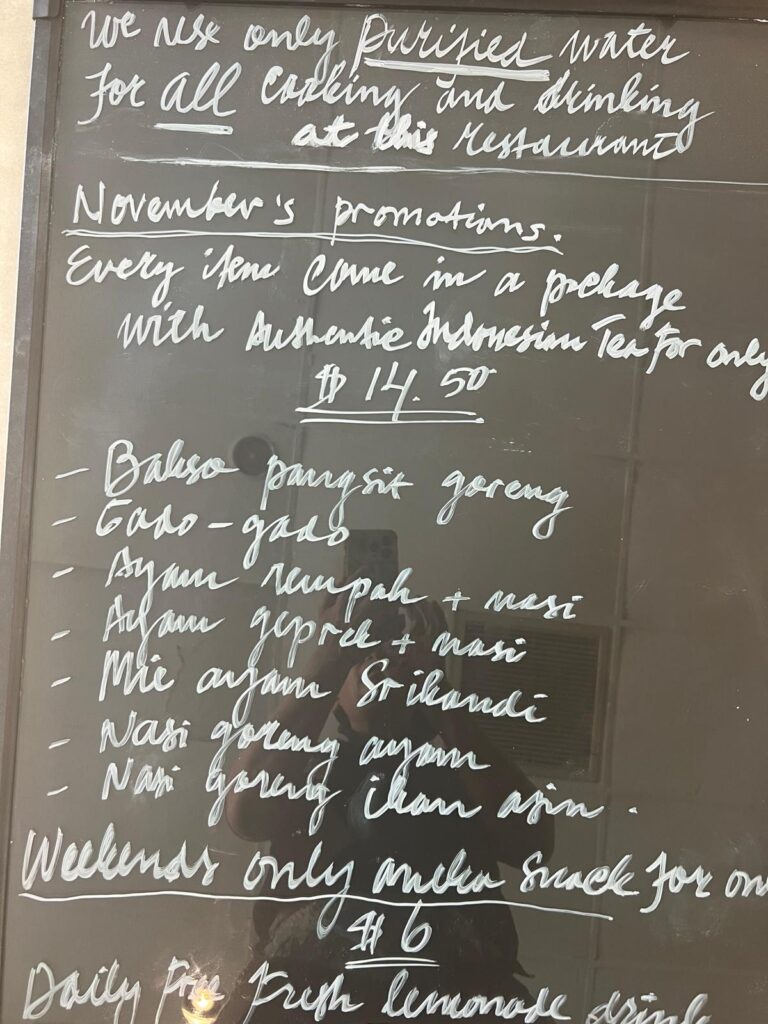 We use only purified water
for all cooking and drinking
at this restaurant
November's promotions.
Every item come in a package
with Authentic Indonesian Tea for only
$ 14.50
- Bakso pangsit goreng
- Gado-gado
- Ayam rempah + nasi
- Ayam geprek + nasi
- Mie ayam Srikandi
- Nasi goreng ayam
- Nasi goreng ikan asin.
Weekends only aneka snack for
$ 6
Daily free fresh lemonade drink